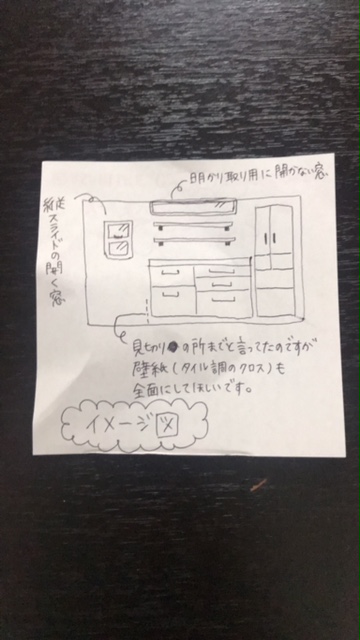 明かり取り用に開かない窓
縦スライドの開く窓
見切りの所までと言ってたのですが
壁紙(タイル調のクロス)も
全面にしてほしいです。
イメージ図